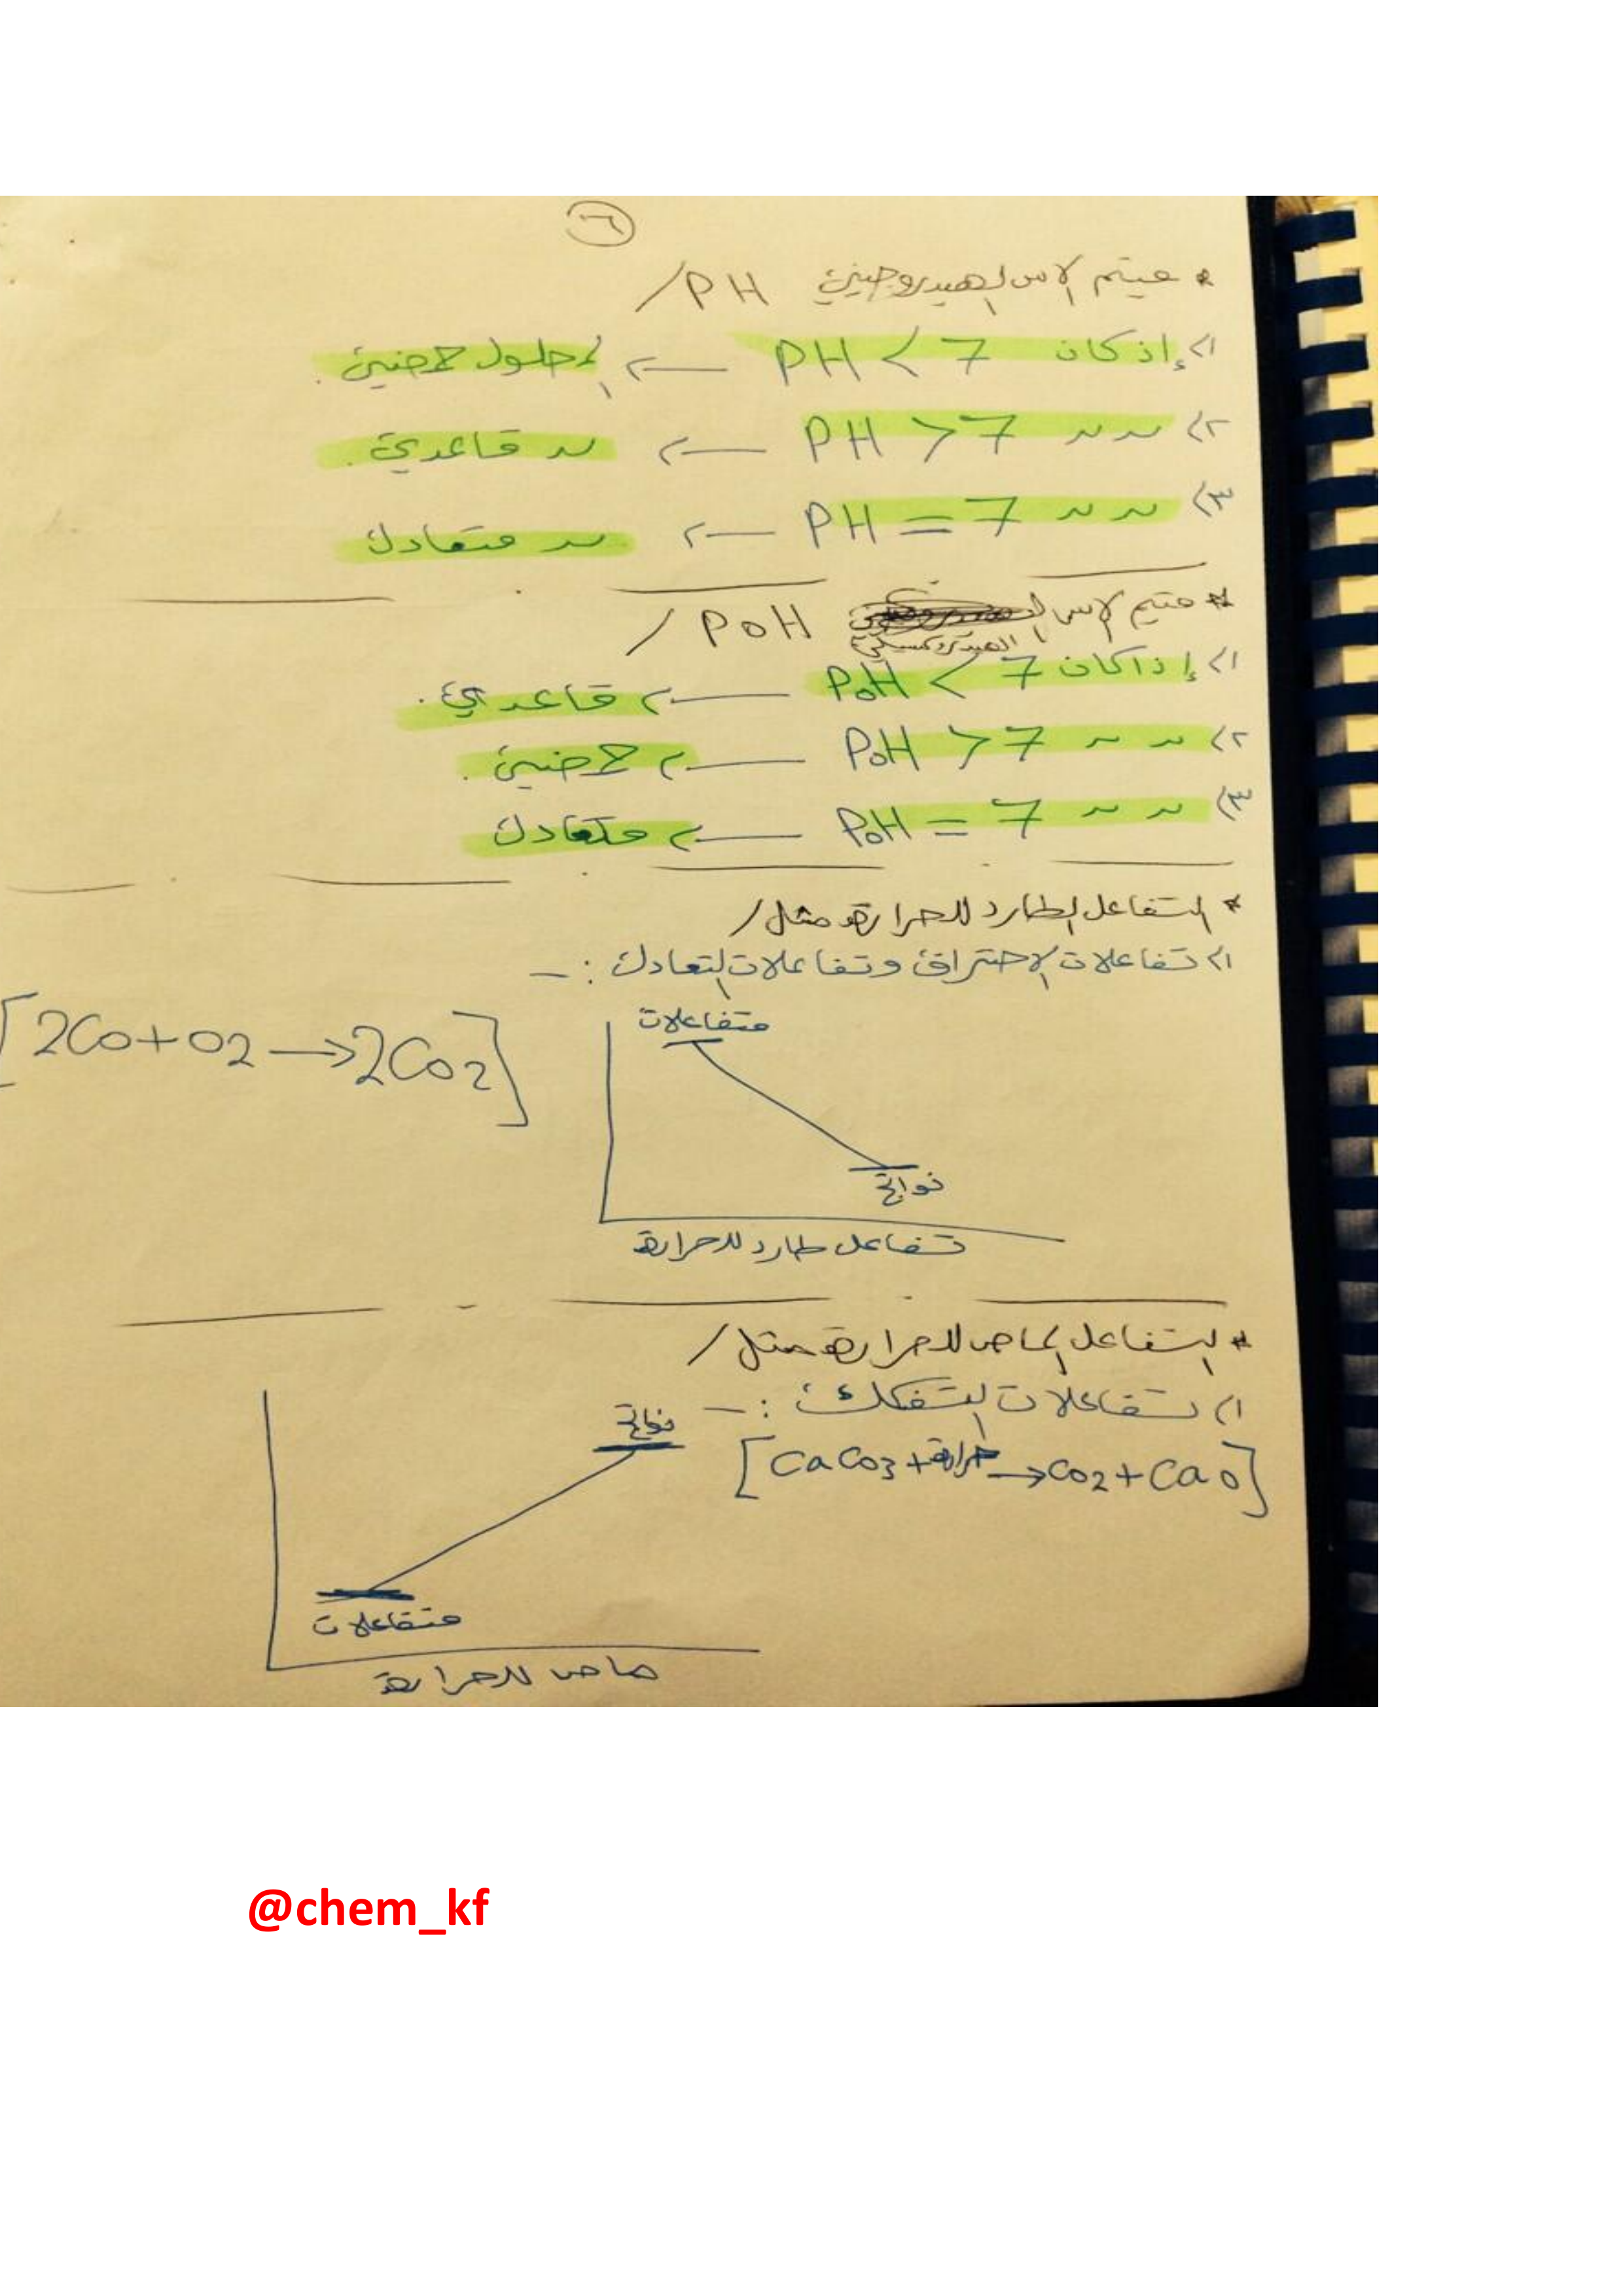 ٦
* قيم الاس الهيدروجيني PH /
١> إذ كان PH < 7 ← المحلول حمضي.
٢> ~ ~ PH > 7 ← ~ قاعدي.
٣> ~ ~ PH = 7 ← ~ متعادل
* قيم الاس الهيدروكسيلي POH /
١> إذا كان POH < 7 ← قاعدي.
٢> ~ ~ POH > 7 ← حمضي.
٣> ~ ~ POH = 7 ← متعادل
* التفاعل الطارد للحرارة مثل /
١> تفاعلات الاحتراق وتفاعلات التعادل :-
[2CO + O2 → 2CO2]
متفاعلات
نواتج
تفاعل طارد للحرارة
* التفاعل الماص للحرارة مثل /
١) تفاعلات التفكك :-
[CaCO3 + حرارة → CO2 + CaO]
نواتج
متفاعلات
ماص للحرارة
@chem_kf